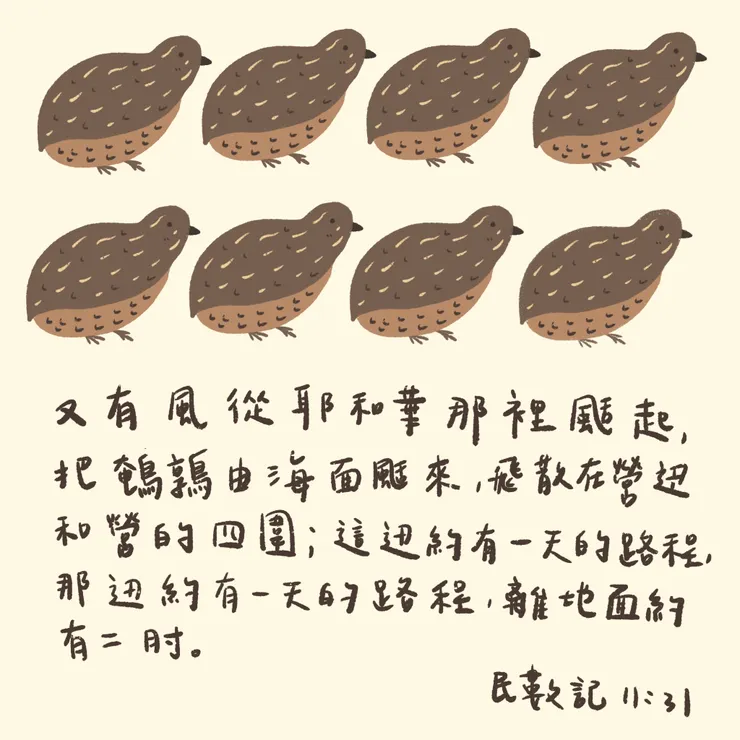 又有風從耶和華那裡颳起,
把鵪鶉由海面颳來,飛散在營边
和營的四圍;這边約有一天的路程,
那边約有一天的路程,離地面約
有二肘。
民數記 11:31